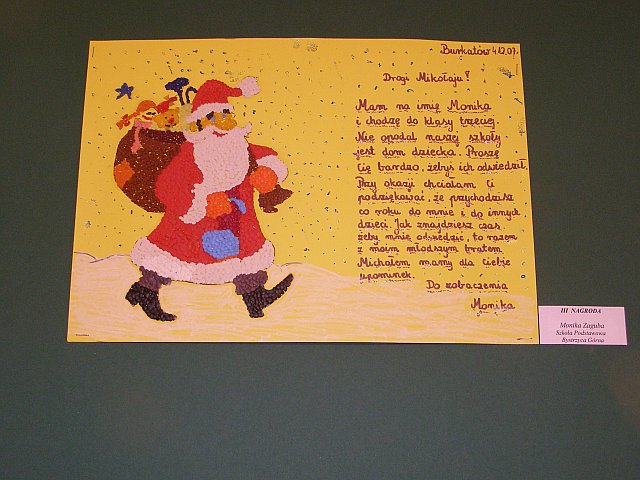 Burkatów 4.12.07r.
Drogi Mikołaju!
Mam na imię Monika
i chodzę do klasy trzeciej.
Nie opodal naszej szkoły
jest dom dziecka. Proszę
Cię bardzo, żebyś ich odwiedził.
Przy okazji chciałam Ci
podziękować, że przychodzisz
co roku do mnie i do innych
dzieci. Jak znajdziesz czas,
żeby mnie odwiedzić, to razem
z moim młodszym bratem
Michałem mamy dla Ciebie
upominek.
Do zobaczenia
Monika
III NAGRODA
Monika Zaguba
Szkoła Podstawowa
Bystrzyca Górna